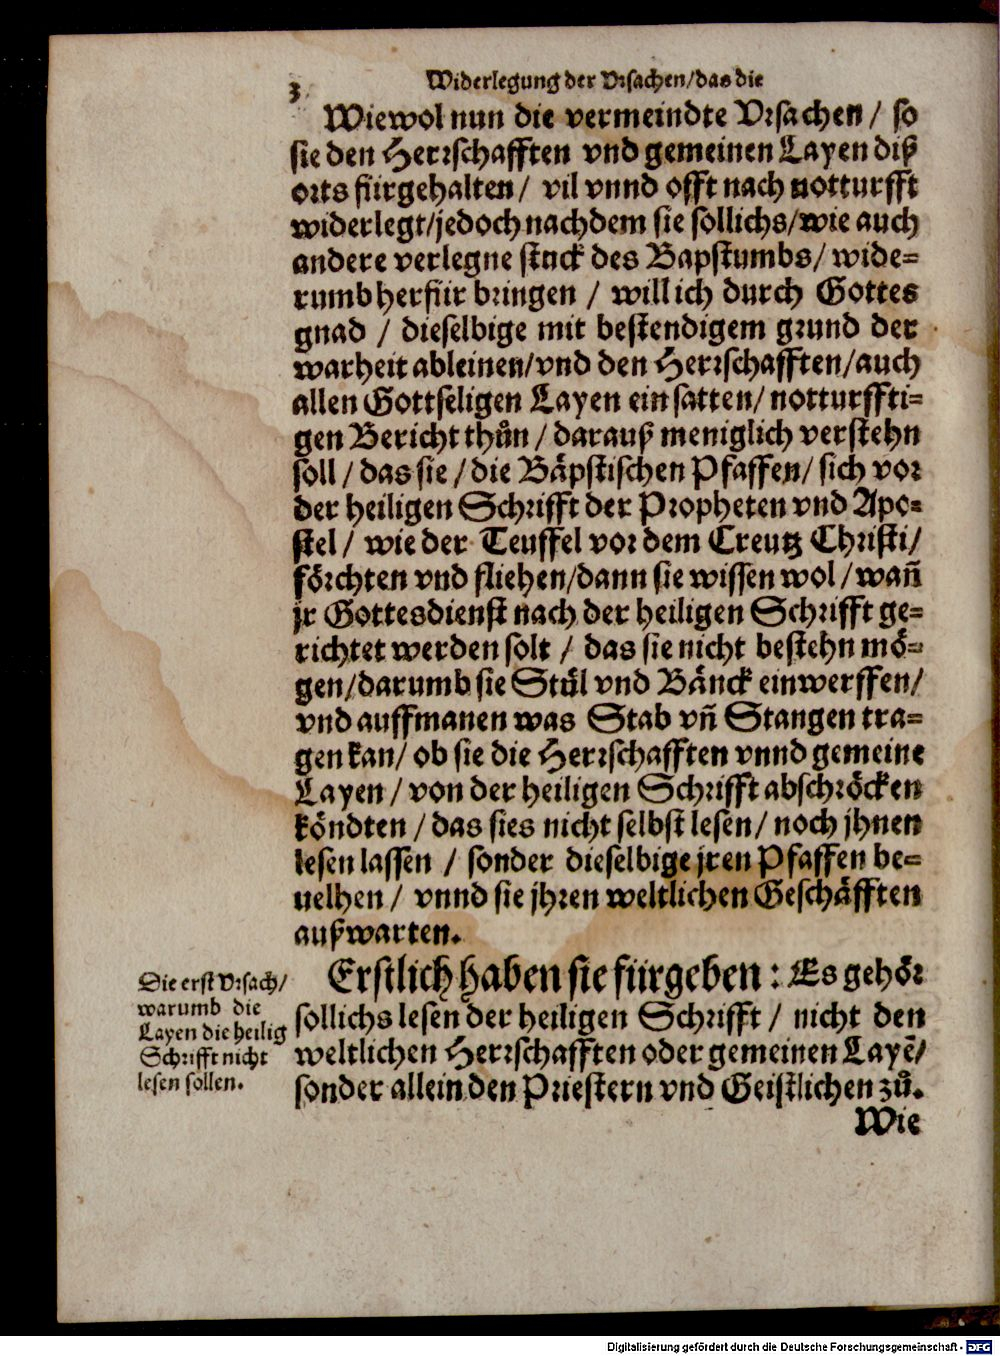 3 Widerlegung der Vrsachen/das die
Wiewol nun die vermeindte Vrsachen / so
sie den Herrschafften vnd gemeinen Layen diß
orts fürgehalten / vil vnnd offt nach notturfft
widerlegt/jedoch nachdem sie sollichs/wie auch
andere verlegne stuck des Bapstumbs/ wide=
rumb herfür bringen / will ich durch Gottes
gnad / dieselbige mit bestendigem grund der
warheit ableinen/vnd den Herrschafften/auch
allen Gottseligen Layen ein satten/ notturffti=
gen Bericht thůn / darauß meniglich verstehn
soll / das sie / die Bäpstischen Pfaffen/ sich vor
der heiligen Schrifft der Propheten vnd Apo=
stel / wie der Teuffel vor dem Creutz Christi/
förchten vnd fliehen/dann sie wissen wol / wañ
jr Gottesdienst nach der heiligen Schrifft ge=
richtet werden solt / das sie nicht bestehn mö=
gen/darumb sie Stül vnd Bänck einwerffen/
vnd auffmanen was Stab vñ Stangen tra=
gen kan/ ob sie die Herrschafften vnnd gemeine
Layen / von der heiligen Schrifft abschröcken
köndten / das sies nicht selbst lesen/ noch jhnen
lesen lassen / sonder dieselbige jren Pfaffen be=
uelhen / vnnd sie jhren weltlichen Geschäfften
außwarten.
Erstlich haben sie fürgeben : Es gehör
sollichs lesen der heiligen Schrifft / nicht den
weltlichen Herrschafften oder gemeinen Layẽ/
sonder allein den Priestern vnd Geistlichen zů.
Wie
Die erst Vrsach/
warumb die
Layen die heilig
Schrifft nicht
lesen sollen.
Digitalisierung gefördert durch die Deutsche Forschungsgemeinschaft - DFG